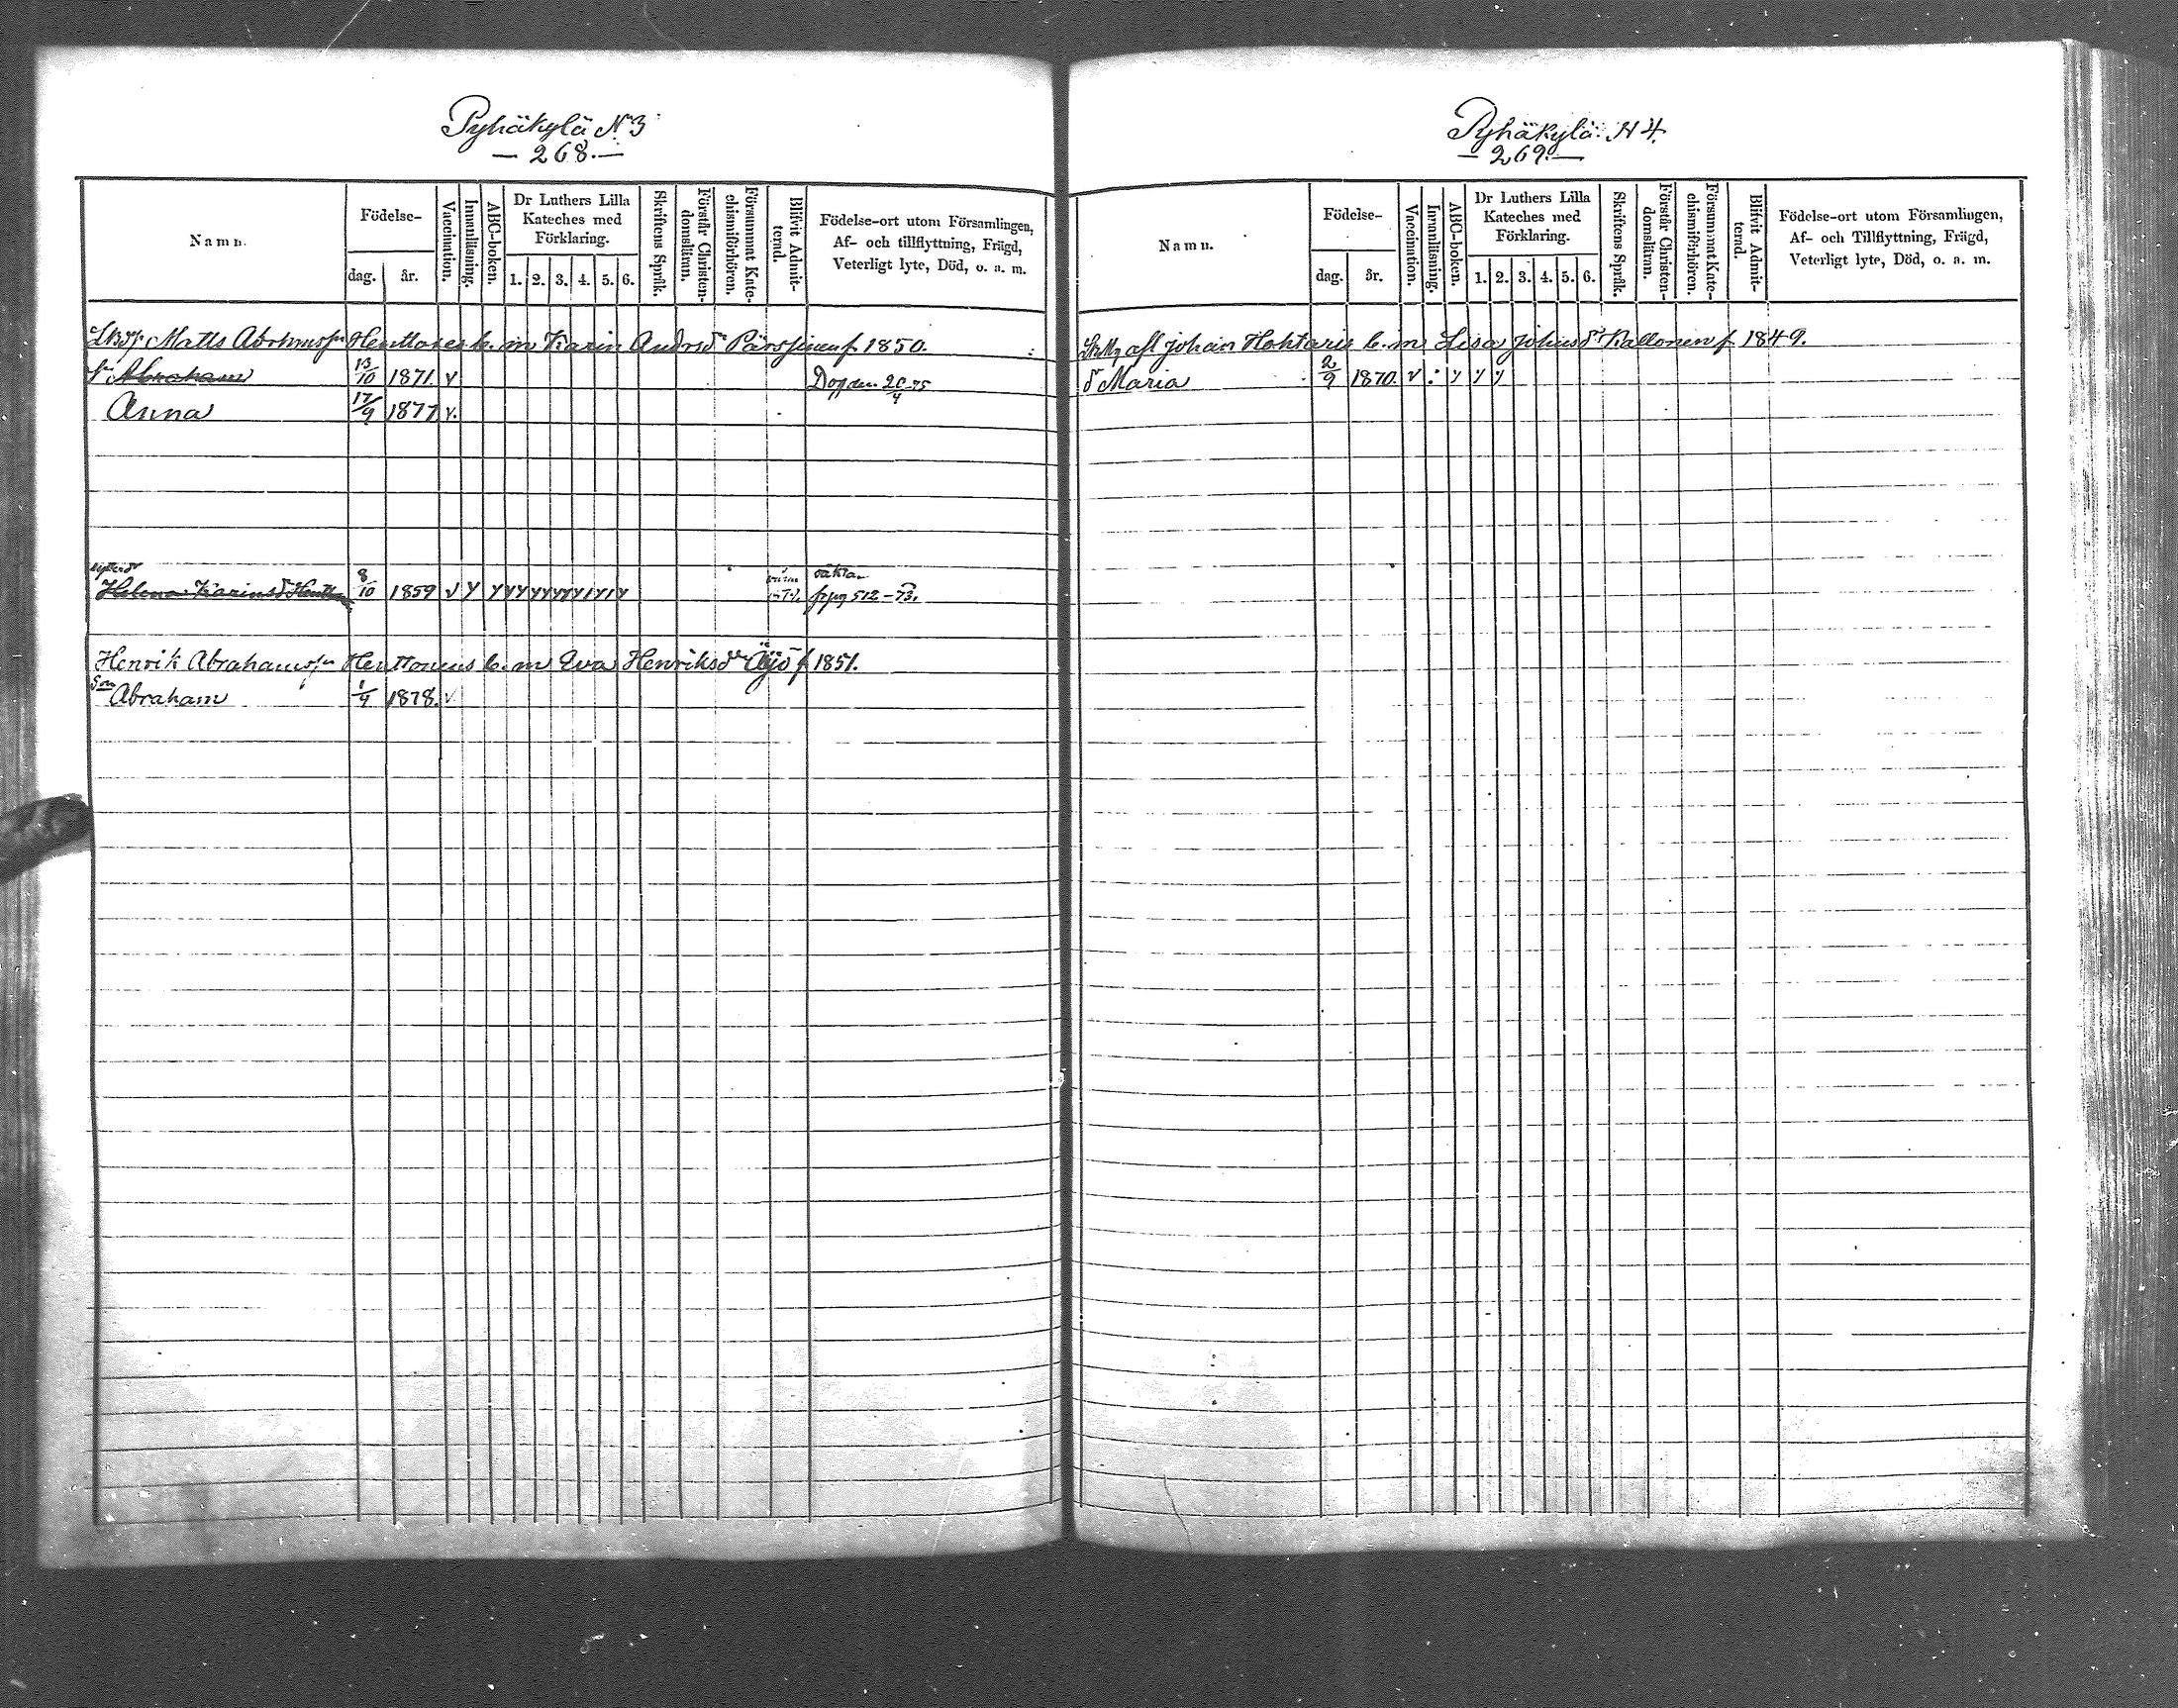 Pyhäkylä N:3
— 268. —
Namn. Födelse- dag. år. Vaccination. Innanläsning. ABC-boken. Dr Luthers Lilla Kateches med Förklaring. 1. 2. 3. 4. 5. 6. Skriftens Språk. Förstår Christendomsläran. Försummat Katechismiförhören. Blifvit Admitterad. Födelse-ort utom Församlingen, Af- och tillflyttning, Frägd, Veterligt lyte, Död, o. a. m.
Matts Abrhmss:n Henttonen b. m Karin Andrsdr Pärssinen f. 1850.
Sn Abraham 13/10 1871. v Dog den 20/4 75
Anna 17/9 1877 v.
Helena Karinsdr Hentton 8/10 1859 v y y y y y y y y y y y y frpg 512 - 73.
Henrik Abrahamss:n Henttonens b. m Eva Henriksdr Äijö f 1851.
Son Abraham 1/4 1878. v
Pyhäkylä. N 4.
— 269. —
Namn. Födelse- dag. år. Vaccination. Innanläsning. ABC-boken. Dr Luthers Lilla Kateches med Förklaring. 1. 2. 3. 4. 5. 6. Skriftens Språk. Förstår Christendomsläran. Försummat Katechismiförhören. Blifvit Admitterad. Födelse-ort utom Församlingen, Af- och Tillflyttning, Frägd, Veterligt lyte, Död, o. a. m.
afl Johan Hohtaris b. m Lisa Johnsdr Kallonen f. 1849.
dr Maria 2/9 1870. v : y y y